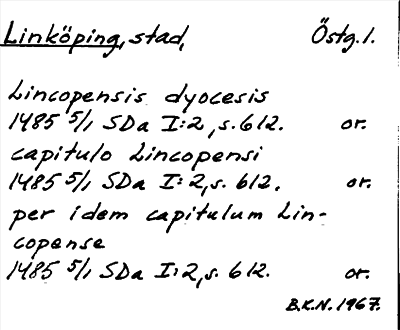 Linköping, stad, Östg.l.
Lincopensis dyocesis
1485 5/1 SDa I:2, s. 612. or.
capitulo Lincopensi
1485 5/1 SDa I:2, s. 612. or.
per idem capitulum Lin-
copense
1485 5/1 SDa I:2, s. 612. or.
B.K.N. 1967.